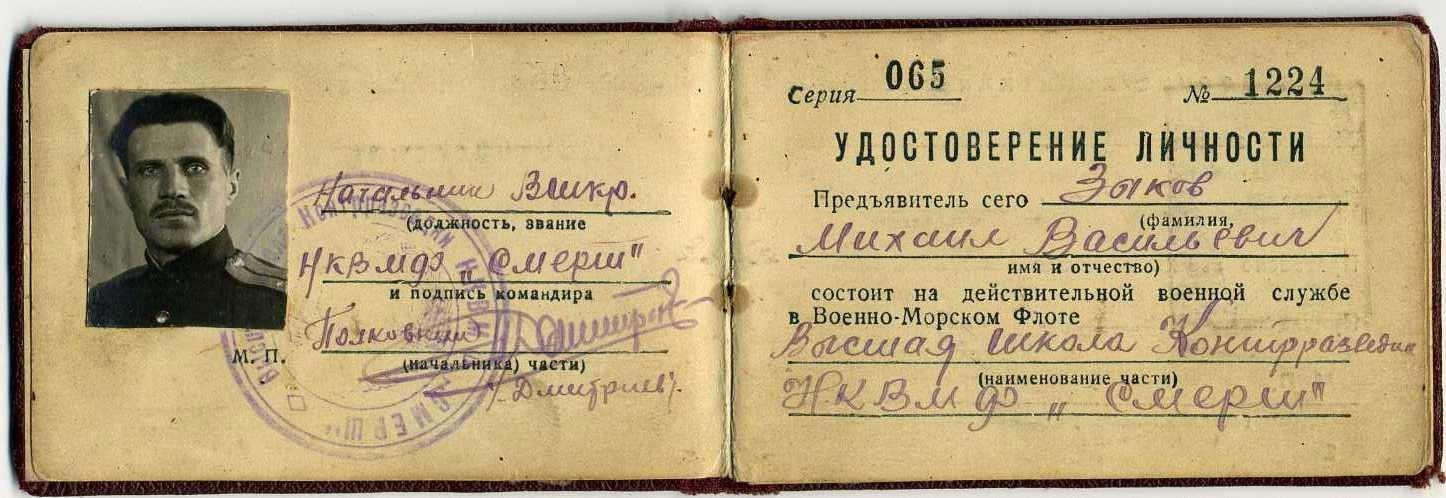 Начальник Вшкр.
(должность, звание
НКВМФ „Смерш"
и подпись командира
Полковник
М. П.
(начальника) части)
/Дмитриев/.
НКВМФ
СМЕРШ
Серия 065 № 1224
УДОСТОВЕРЕНИЕ ЛИЧНОСТИ
Предъявитель сего Зыков
(фамилия,
Михаил Васильевич
имя и отчество)
состоит на действительной военной службе
в Военно-Морском Флоте
Высшая школа Контрразведки
(наименование части)
НКВМФ „Смерш"